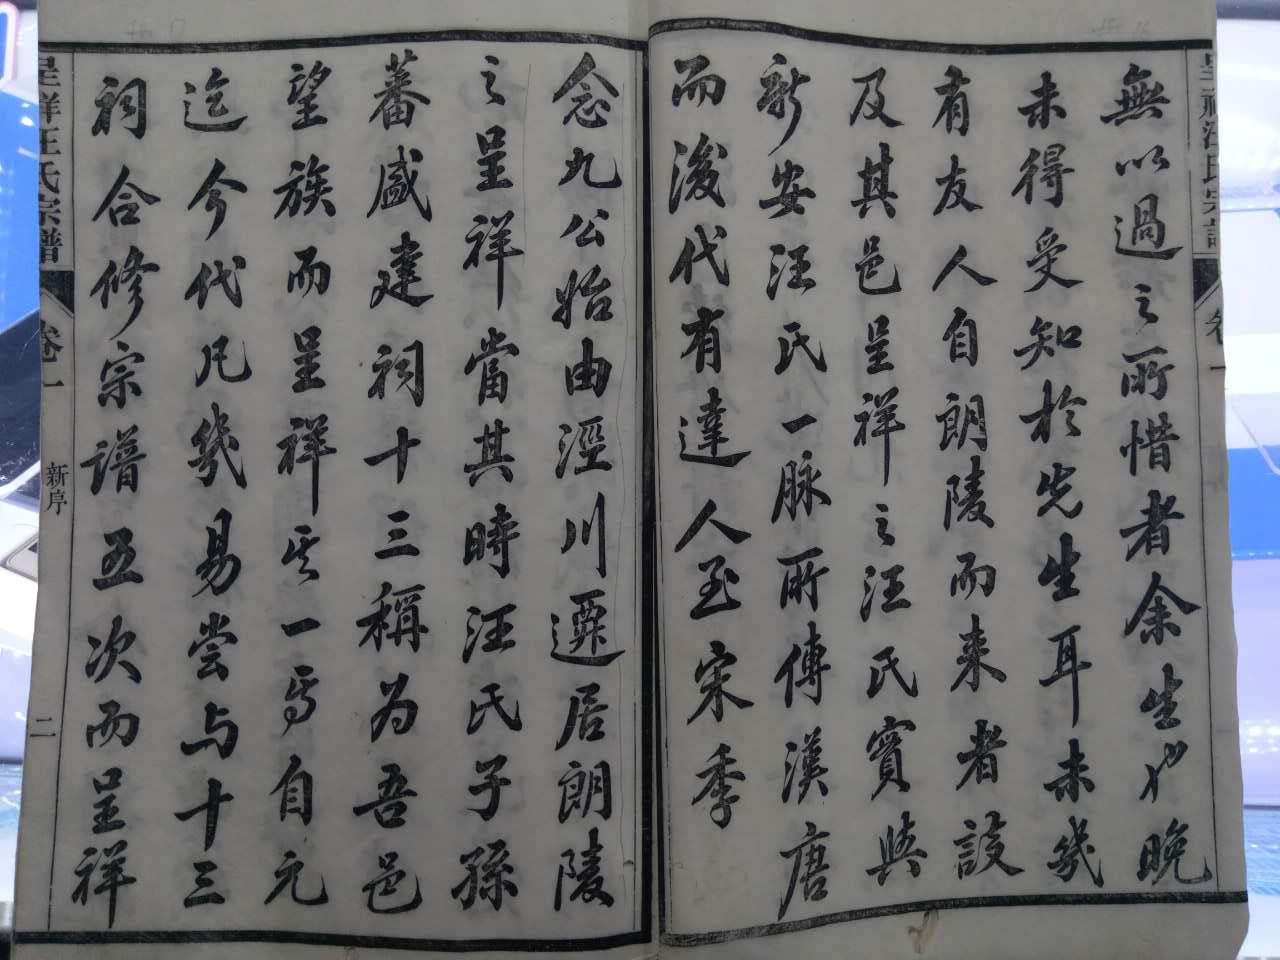 無以過之所惜者余生也晚
未得受知於先生耳未幾
有友人自朗陵而来者設
及其邑呈祥之汪氏實與
新安汪氏一脉所傳漢唐
而後代有達人至宋季
念九公始由涇川遷居朗陵
之呈祥當其時汪氏子孫
蕃盛建祠十三稱為吾邑
望族而呈祥其一焉自元
迄今代凡幾易嘗与十三
祠合修宗譜五次而呈祥
呈祥汪氏宗譜
卷一
新序
二
呈祥汪氏宗譜
卷一